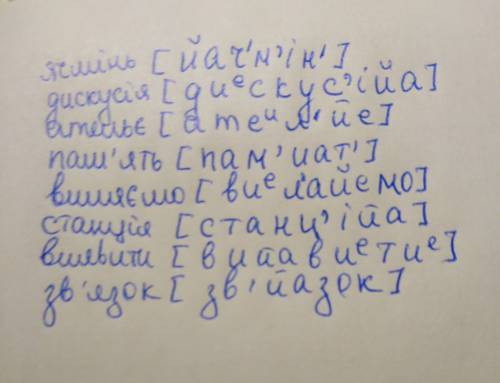 ячмінь [йач'м'ін']
дискусія [диᵉскус'ійа]
ательє [атеᶦл'йе]
пам'ять [пам'иат']
виляємо [виᵉл'айемо]
станція [станц'ійа]
виявити [вийавиᵉтиᵉ]
зв'язок [зв'йазок]